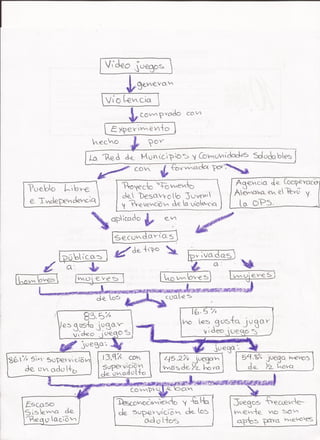 Video juegos
generan
Violencia
comprobado con
Experimento
hecho por
La Red de Municipios y Comunidades Saludables
con formada por
Pueblo Libre
e Independencia
Proyecto "Fomento
del Desarrollo Juvenil
y Prevención de la violencia
Agencia de Cooperación
Alemana en el Perú y
la OPS.
aplicado en
secundarias
de tipo
públicas
privadas
a:
a
hombres
mujeres
hombres
mujeres
de los cuales
83.5%
les gusta jugar
video juegos
16.5%
no les gusta jugar
video juegos
juega:
juega:
86.1% sin supervisión
de un adulto
13.9% con
supervisión
de un adulto
45.2% juegan
mas de ½ hora
54.8% juega menos
de ½ hora
comprueban
Escaso
Sistema de
Regulación
Desconocimiento y falta
de supervisión de los
adultos
Juegos frecuente-
mente no son
aptos para menores